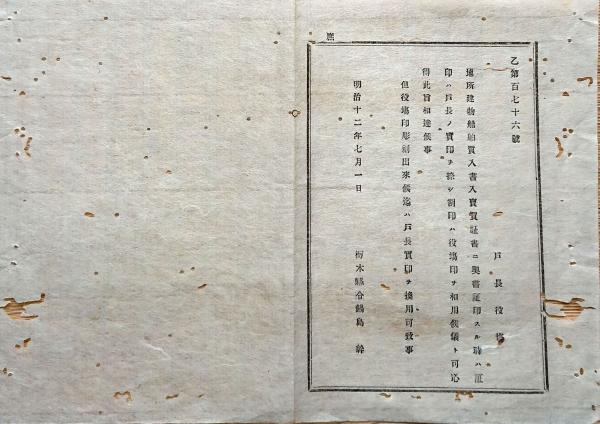 鹿
乙第百七十六號
戸長役塲
地所建物船舶質入書入賣買証書ニ奥書証印スル時ハ証
印ハ戸長ノ實印ヲ捺シ割印ハ役塲印ヲ相用候儀ト可心
得此旨相達候事
但役塲印彫刻出來候迄ハ戸長實印ヲ換用可致事
明治十二年七月一日
栃木縣令鍋島幹